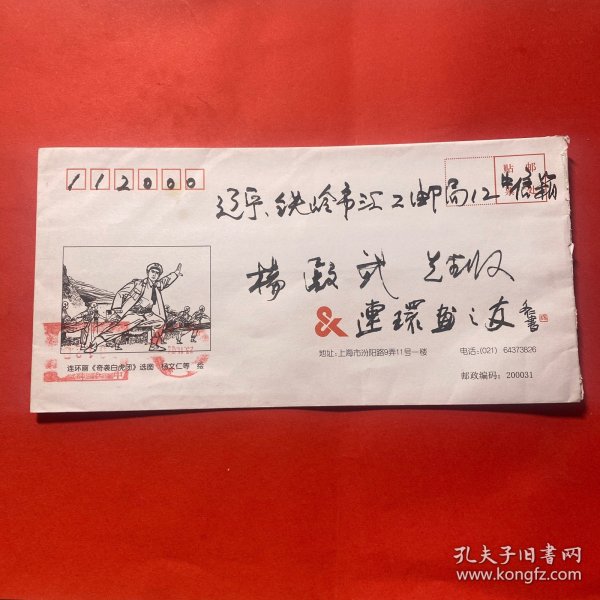 112000
贴 邮
辽宁铁岭市汇工邮局12#信箱
杨殿武 先生收
& 连环画之友
地址:上海市汾阳路9弄11号一楼 电话:(021) 64373826
邮政编码:200031
连环画《奇袭白虎团》选图 杨文仁等 绘
孔夫子旧书网
www.kongfz.com